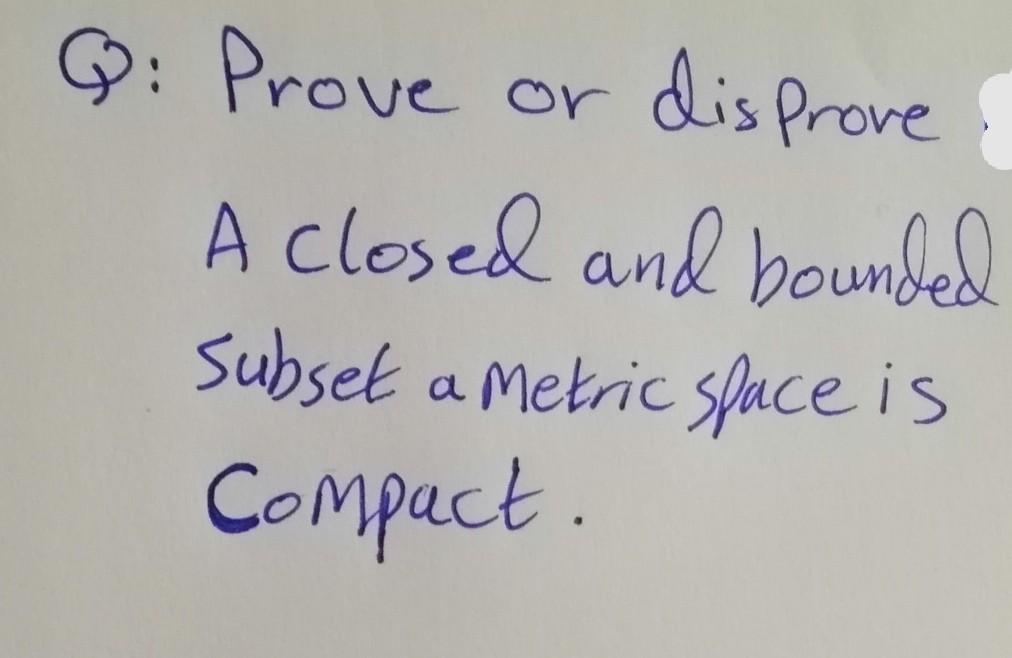 Q: Prove or disprove
A closed and bounded
subset a metric space is
Compact.